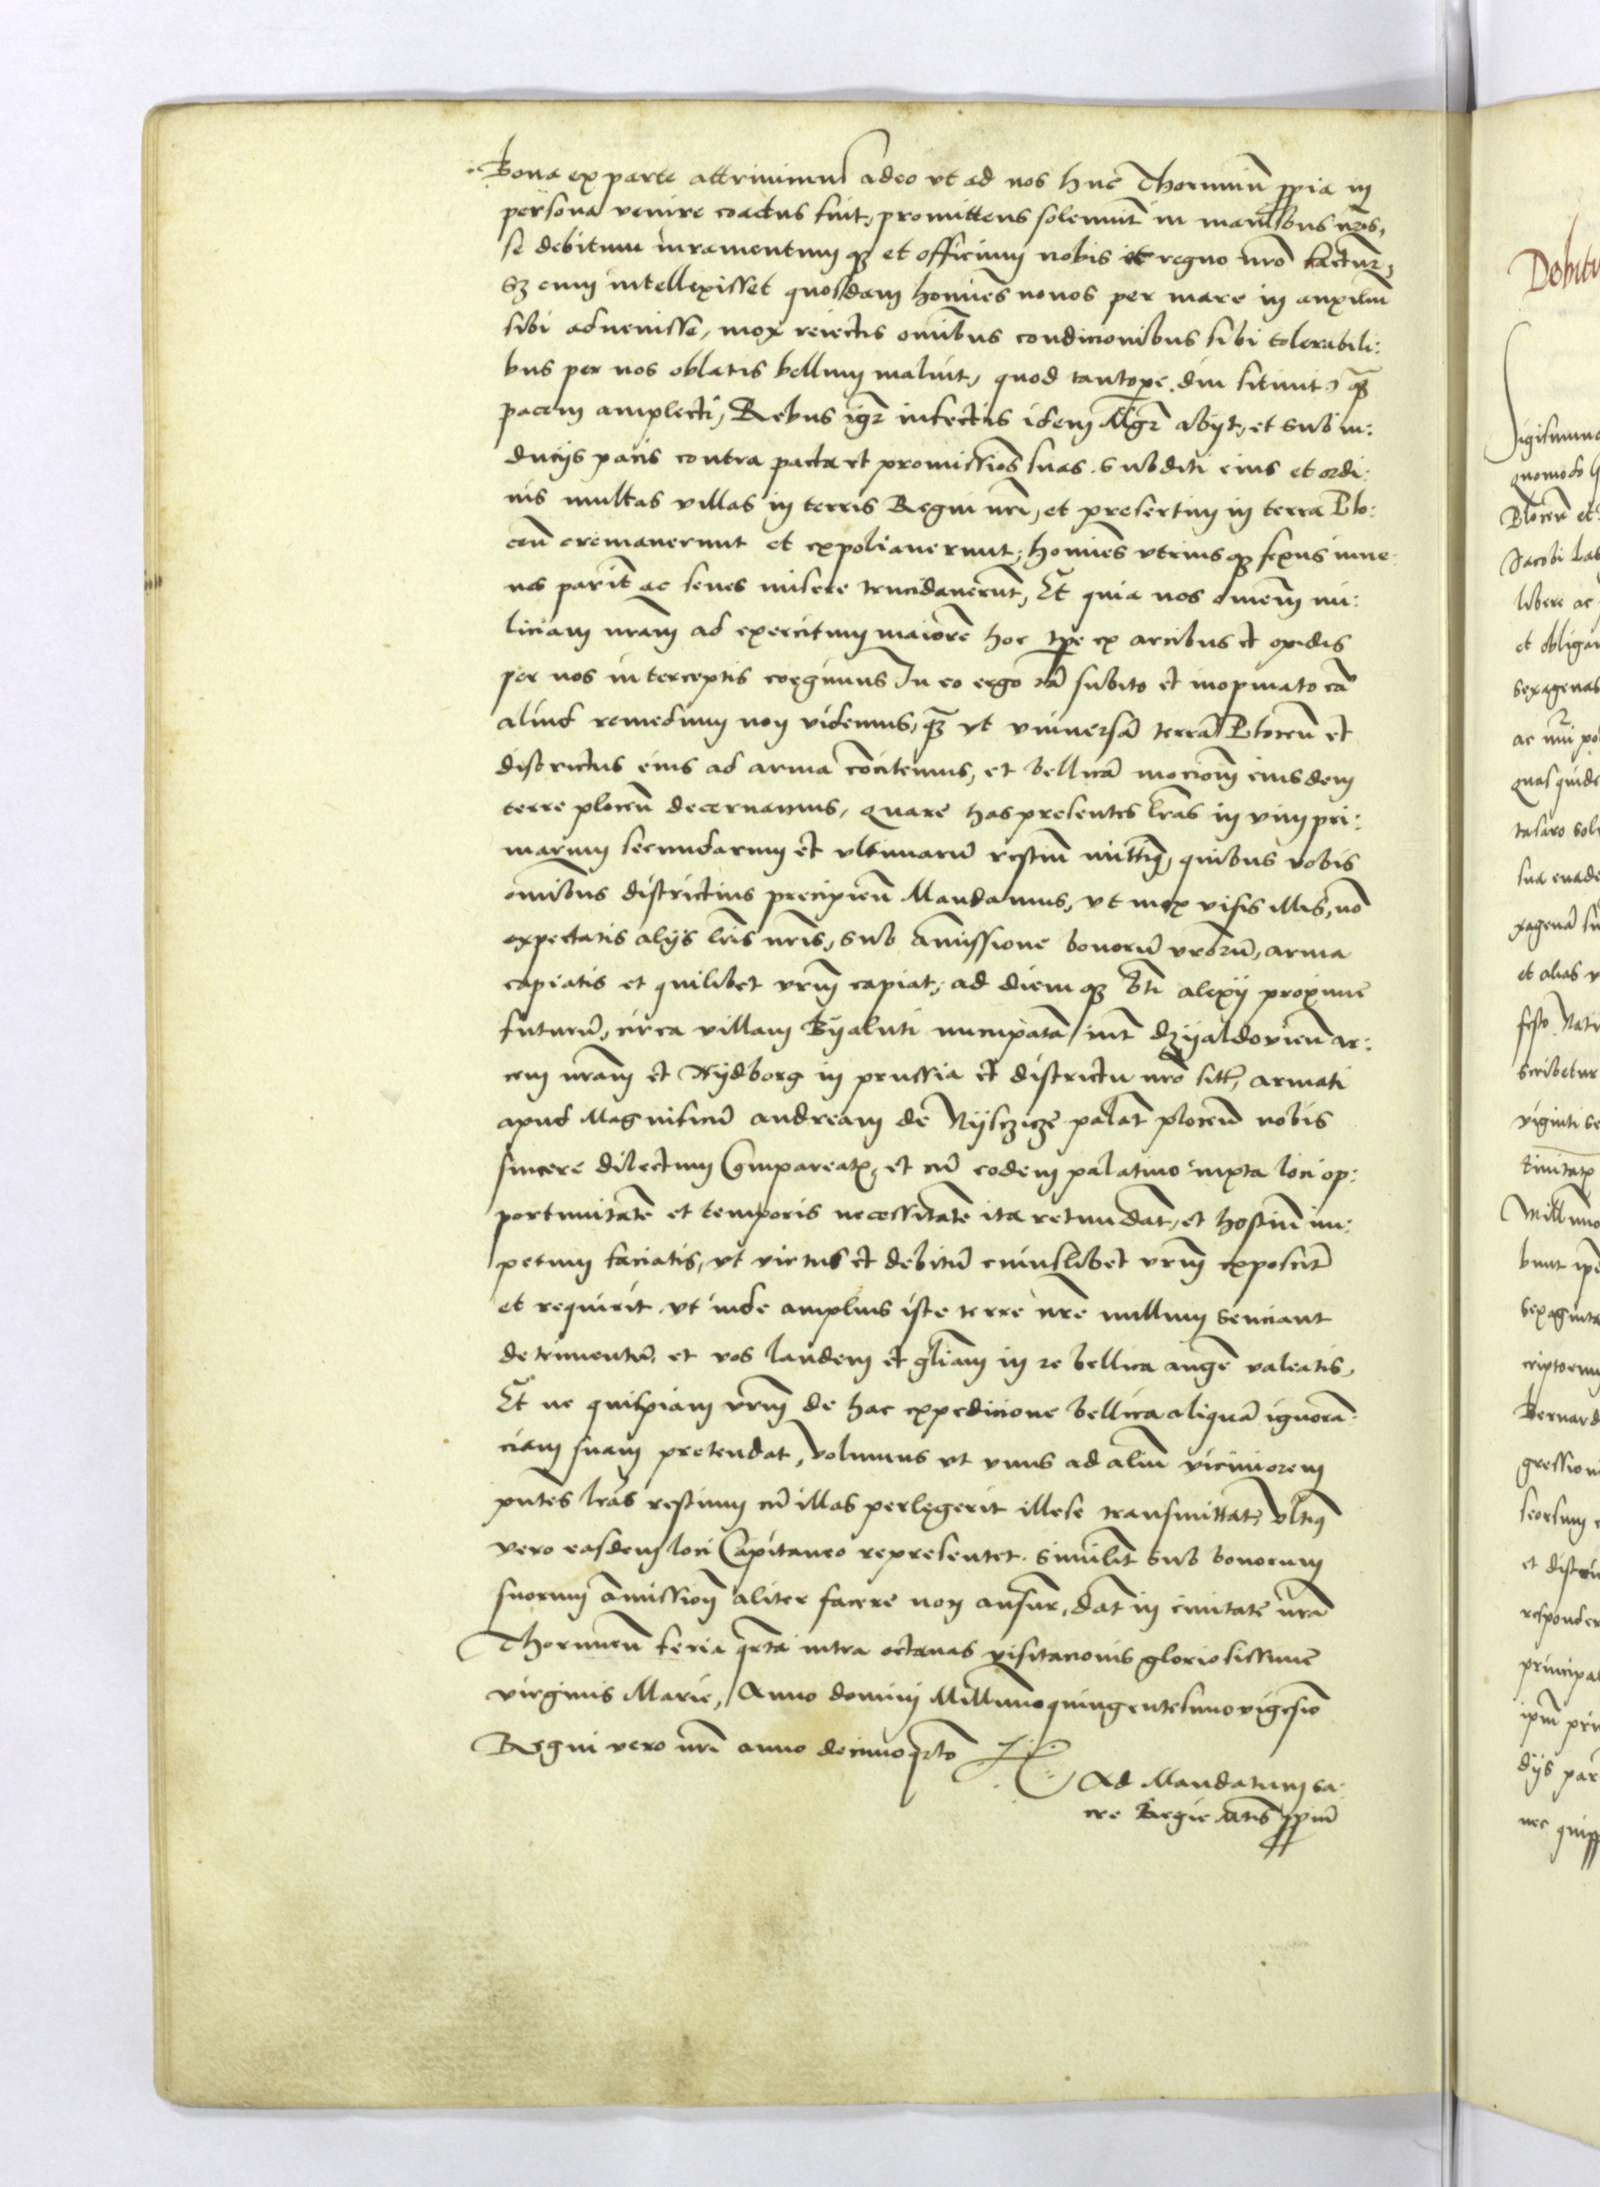 Bona ex parte attrivimus adeo vt ad nos huc Thoruniū ꝓpria in
persona venire coactus fuit, promittens solemnit̃ in manibus nr̃is,
se debitum iuramentum qȝ et officium nobis et regno nr̃o factur̃,
Sȝ cum intellexisset quosdam homĩes nouos per mare in auxiliũ
sibi aduenisse, mox reiectis omĩbus condicionibus sibi tolerabili:
bus per nos oblatis bellum maluit, quod tantoꝑe diu sitiuit, qȝ̃
pacem amplecti, Rebus igr̃ infectis idem Mgr̃ abijt, et sub in:
ducijs pacis contra pacta et promissiões suas subditi eius et ordi:
nis multas villas in terris Regni nr̃i, et presertim in terra Plo:
ceñ cremauerunt et expoliauerunt, homĩes vtriusqȝ sexus iuue:
nes parit̃ ac senes misere trucidauerũt, Et quia nos omẽm mi:
liciam nr̃am ad exercitum maiorẽ hoc tp̃e ex arcibus et opidis
per nos interceptis coegimus In eo ergo tã subito et inopinato cã
aliud remedium non videmus, qȝ̃ vt vniuersã terrã Ploceñ et
districtus eius ad arma cõcitemus, et bellicã mocionẽ eiusdem
terre ploceñ decernamus, quare has presentes lr̃as in vim pri:
marum secundarum et vltimarũ restiũ mittimꝰ, quibus vobis
omĩbus districtius precipieñ Mandamus, vt mox visis illis, nõ
expectatis alijs lr̃is nr̃is, sub amissione bonorũ vr̃orũ, arma
capiatis et quilibet vr̃m capiat, ad diem qȝ Sti alexij proxime
futurũ, circa villam Byaluti nuncupatã int̃ Dzyaldovieñ ar:
cem nr̃am et Nydborg in prussia et districtu nr̃o sitt̃, armati
apud Magnificũ andream de Nysczicze palat̃ ploceñ nobis
sincere dilectum Compareatis, et cũ eodem palatino iuxta loci op:
portunitatẽ et temporis necessitatẽ ita retundat̃, et hostiũ im:
petum faciatis, vt virtus et debitũ cuiuslibet vr̃m exposcit
et requirit vt inde amplius iste terre nr̃e nullum senciant
detrimentũ, et vos laudem et gl̃iam in re bellica auger̃ valeatis,
Et ne quispiam vr̃m de hac expedicione bellica aliquã ignorã:
ciam suam pretendat, volumus vt vnus ad aliũ viciniorem
pñtes lr̃as restium cũ illas perlegerit illese transmittat, vltimꝰ
vero easdem loci Capitaneo representet. Similit̃ sub bonorum
suorum amissioñ aliter facere non ausur̃, dat̃ in ciuitate nr̃a
Thorunieñ feria qr̃ta intra octauas visitacionis gloriosissime
virginis Marie, Anno domini Millimoquingentesimovigesio
Regni vero nr̃i anno decimoqr̃to
Ad Mandatum sa:
cre Regie Mtis ꝓpriũ